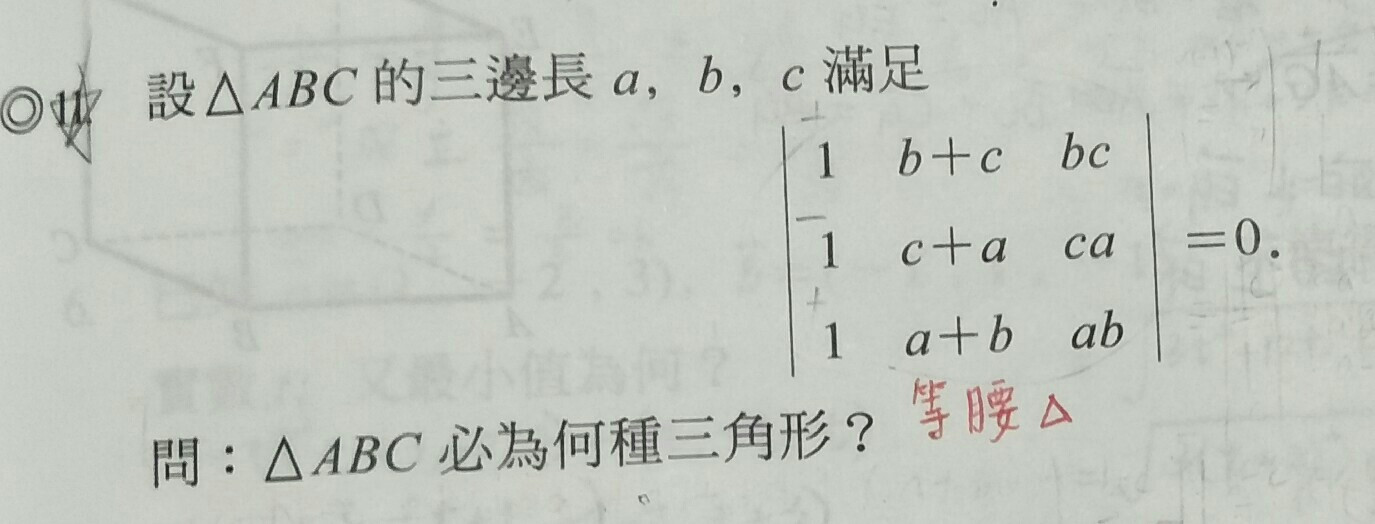 ◎11. 設△ABC 的三邊長 a, b, c 滿足
| 1 b+c bc |
| 1 c+a ca | =0.
| 1 a+b ab |
問：△ABC 必為何種三角形？ 等腰△